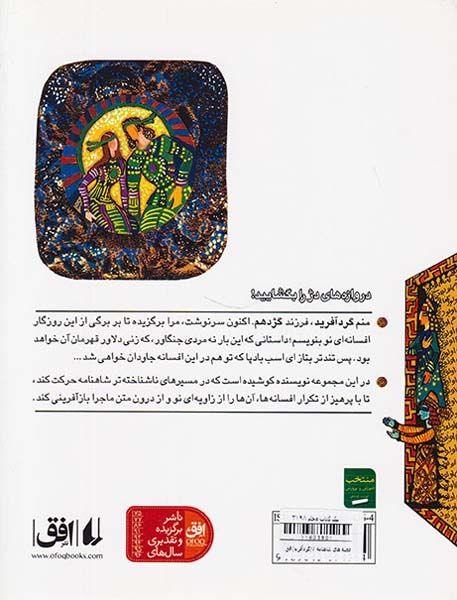 دروازه‌های دژ را بگشایید!
منم گردآفرید، فرزند گژدهم. اکنون سرنوشت، مرا برگزیده تا بر برگی از این روزگار
افسانه‌ای نو بنویسم؛ داستانی که این بار نه مردی جنگاور، که زنی دلاور قهرمان آن خواهد
بود. پس تندتر بتاز ای اسب بادپا که تو هم در این افسانه جاودان خواهی شد ...
در این مجموعه نویسنده کوشیده است که در مسیرهای ناشناخته‌تر شاهنامه حرکت کند،
تا با پرهیز از تکرار افسانه‌ها، آن‌ها را از زاویه‌ای نو و از درون متن ماجرا بازآفرینی کند.
منتخب
آموزش و پرورش
ناشر
برگزیده
و تقدیری
سال‌های
افق
ofoq
نشر افق
www.ofoqbooks.com